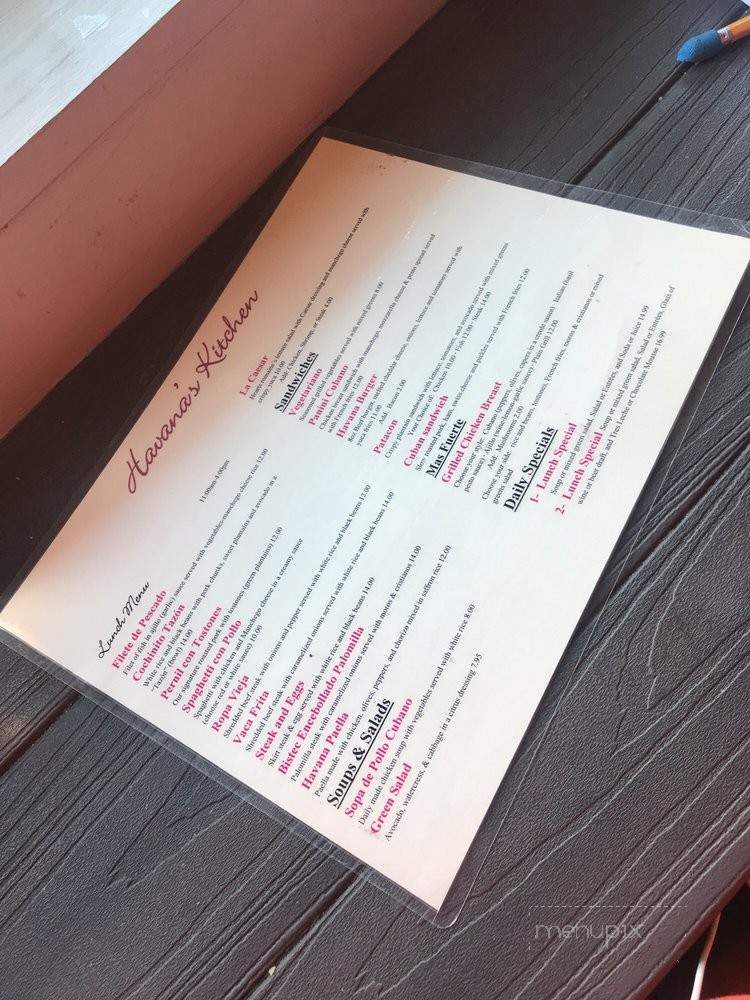 Havana's Kitchen
Lunch Menu
11:00am-4:00pm
Filete de Pescado
Filet of fish in ajillo (garlic) sauce served with vegetables-manchego cheese rice 12.00
Cochinito Tazón
White rice and black beans with pork chunks, sweet plantains and avocado in a
"Tazón" (bowl) 14.00
Pernil con Tostones
Our signature roasted pork with tostones (green plantains) 12.00
Spaghetti con Pollo
Spaghetti with chicken and Manchego cheese in a creamy sauce
(choose red or white sauce) 10.00
Ropa Vieja
Shredded beef steak with onions and pepper served with white rice and black beans 12.00
Vaca Frita
Shredded beef steak with caramelized onions served with white rice and black beans 14.00
Steak and Eggs
Skirt steak & egg served with white rice and black beans 14.00
Bistec Encebollado Palomilla
Palomilla steak with caramelized onions served with moros & cristianos 14.00
Havana Paella
Paella made with chicken, olives, peppers, and chorizo mixed in saffron rice 12.00
Soups & Salads
Sopa de Pollo Cubano
Daily made chicken soup with vegetables served with white rice 8.00
Green Salad
Avocado, watercress, & cabbage in a citrus dressing 7.95
La Caesar
Hearts romaine's lettuce salad with Caesar dressing and manchego cheese served with
crispy yuca 10.00
Add: Chicken, Shrimp, or Steak 4.00
Sandwiches
Vegetariano
Seasoned grilled vegetables served with mixed greens 8.00
Panini Cubano
Chicken breast sandwich with manchego, mozzarella cheese & pesto spread served
with French fries 12.00
Havana Burger
8oz Beef Burger, melted cheddar cheese, onions, lettuce and tomatoes served with
yuca fries 11.00
Add: Bacon 2.00
Patacon
Crispy plantain sandwich with lettuce, tomatoes, and avocado served with mixed greens
Your Choice of: Chicken 10.00 - Fish 12.00 - Steak 14.00
Cuban sandwich
Slow roasted pork, ham, swiss cheese and pickles served with French fries 12.00
Mas Fuerte
Grilled Chicken Breast
Choose your style: Cubano (peppers, olives, capers in a creole sauce) - Italian (basil
pesto sauce) - Ajillo (wine/tomato/garlic sauce) - Plain Grill 12.00
Add: Mushrooms 2.00
Choose your side: rice and beans, tostones, French fries, moros & cristianos or mixed
greens salad
Daily Specials
1- Lunch Special
Soup or mixed green salad, Salad or Entrées, and Soda or Juice 14.99
2- Lunch Special Soup or mixed green salad, Salad or Entrées, Glass of
wine or beer draft, and Tres Leche or Chocolate Mousse 16.99
menupix